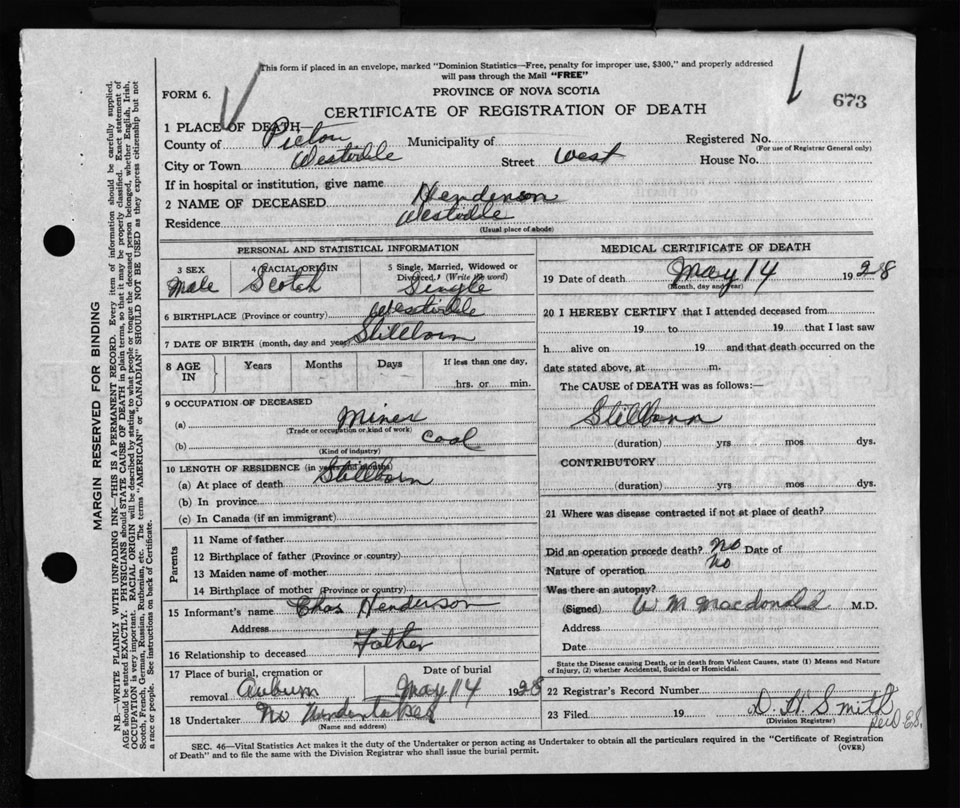 This form if placed in an envelope, marked "Dominion Statistics—Free, penalty for improper use, $300," and properly addressed
will pass through the Mail "FREE"
FORM 6.
PROVINCE OF NOVA SCOTIA
673
CERTIFICATE OF REGISTRATION OF DEATH
1 PLACE OF DEATH—
County of Pictou Municipality of Registered No.
(For use of Registrar General only)
City or Town Westville Street West House No.
If in hospital or institution, give name
2 NAME OF DECEASED Henderson
Residence Westville
(Usual place of abode)
PERSONAL AND STATISTICAL INFORMATION
3 SEX 4 RACIAL ORIGIN 5 Single, Married, Widowed or
Divorced, (Write the word)
Male Scotch Single
6 BIRTHPLACE (Province or country) Westville
7 DATE OF BIRTH (month, day and year) Stillborn
8 AGE IN Years Months Days If less than one day,
hrs. or min.
9 OCCUPATION OF DECEASED
(a) Miner
(Trade or occupation or kind of work)
(b) Coal
(Kind of industry)
10 LENGTH OF RESIDENCE (in years and months)
(a) At place of death Stillborn
(b) In province
(c) In Canada (if an immigrant)
Parents
11 Name of father
12 Birthplace of father (Province or country)
13 Maiden name of mother
14 Birthplace of mother (Province or country)
15 Informant's name Chas Henderson
Address
16 Relationship to deceased Father
17 Place of burial, cremation or Date of burial
removal Auburn May 14 1928
18 Undertaker No Undertaker
(Name and address)
MEDICAL CERTIFICATE OF DEATH
19 Date of death May 14 1928
(Month, day and year)
20 I HEREBY CERTIFY that I attended deceased from
19 to 19 that I last saw
h alive on 19 and that death occurred on the
date stated above, at m.
The CAUSE of DEATH was as follows:—
Stillborn
(duration) yrs mos dys.
CONTRIBUTORY
(duration) yrs mos dys.
21 Where was disease contracted if not at place of death?
Did an operation precede death? No Date of
Nature of operation No
Was there an autopsy?
(Signed) W M Macdonald M.D.
Address
Date
State the Disease causing Death, or in death from Violent Causes, state (1) Means and Nature
of Injury, (2) whether Accidental, Suicidal or Homicidal.
22 Registrar's Record Number
23 Filed 19 D. H. Smith
(Division Registrar)
SEC. 46—Vital Statistics Act makes it the duty of the Undertaker or person acting as Undertaker to obtain all the particulars required in the "Certificate of Registration
of Death" and to file the same with the Division Registrar who shall issue the burial permit.
(OVER)
MARGIN RESERVED FOR BINDING
N.B.—WRITE PLAINLY WITH UNFADING INK—THIS IS A PERMANENT RECORD. Every item of information should be carefully supplied.
AGE should be stated EXACTLY. PHYSICIANS should STATE CAUSE OF DEATH in plain terms, so that it may be properly classified. Exact statement of
OCCUPATION is very important. RACIAL ORIGIN will be described by stating to what people or tongue the deceased person belonged, whether English, Irish,
Scotch, French, German, Russian, Ruthenian, etc. The terms "AMERICAN" or "CANADIAN" SHOULD NOT BE USED as they express citizenship but not
a race or people. See instructions on back of Certificate.